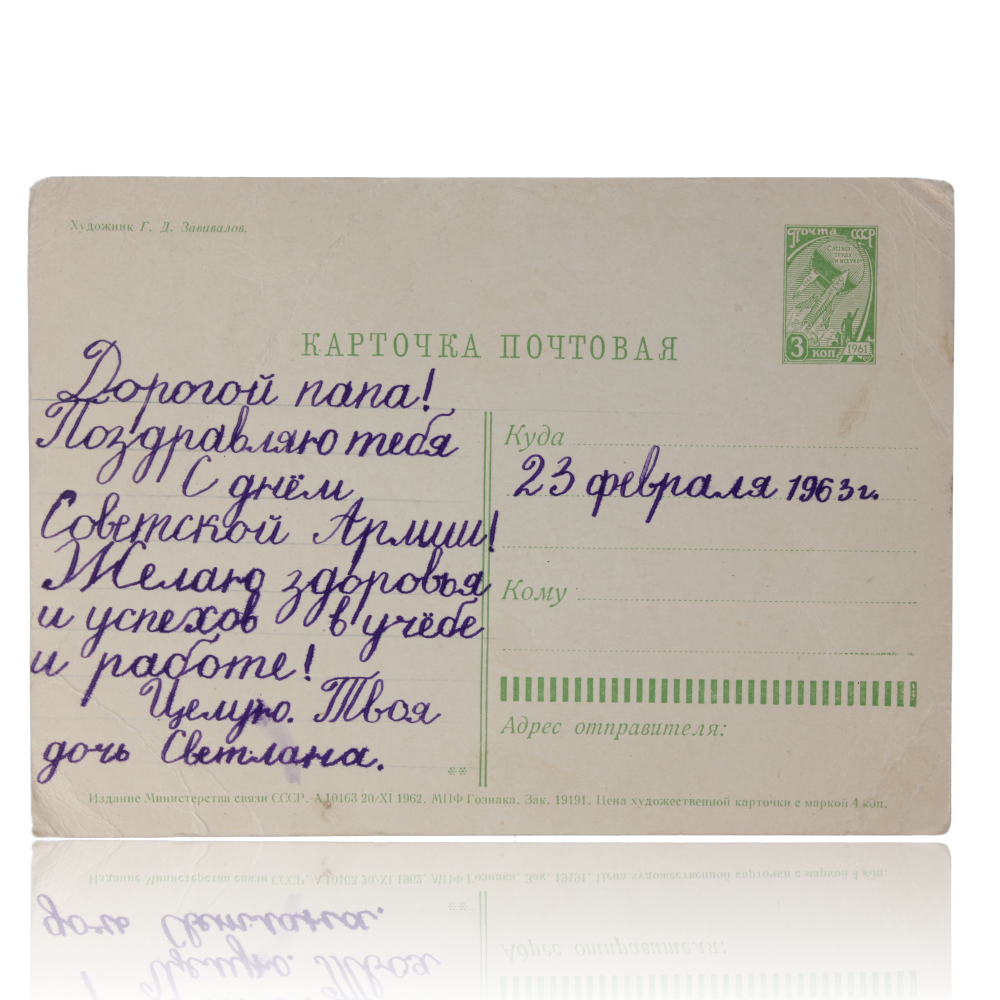 Художник Г. Д. Завивалов.
Почта СССР
СЛАВА
ТРУДУ
И НАУКЕ
3 КОП
1961
КАРТОЧКА ПОЧТОВАЯ
Дорогой папа!
Поздравляю тебя
С днём
Советской Армии!
Желаю здоровья
и успехов в учёбе
и работе!
Целую. Твоя
дочь Светлана.
Куда
23 февраля 1963г.
Кому
Адрес отправителя:
Издание Министерства связи СССР. А 10163 20/XI 1962. МПФ Гознака. Зак. 19191. Цена художественной карточки с маркой 4 коп.